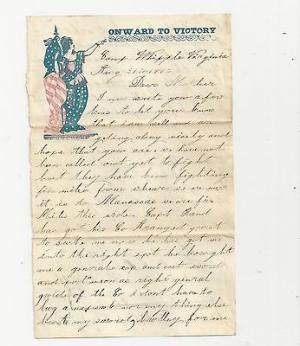 ONWARD TO VICTORY
Camp Whipple Virginia
Aug 31st 1862
Dear Mother
I now write you a few
lines to let you know
that I am well and am
getting along nicely and
hope that you are. we have not
been called out yet to fight
but they have been fighting
five miles from where we are now
it is do Manassas we are five
Miles this side. Capt Rand
has got his Co Arranged prout
to suite me now he has got me
into the right spot he bought
me a general cap and sword
and put me as right general
guide of the Co I dont have to
lug a knapsack nor any thing else
but my sword, a bully for me